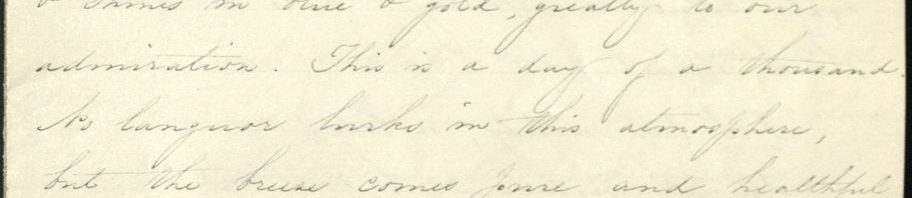 & shines in blue & gold, greatly to our
admiration. This is a day of a thousand.
No languor lurks in this atmosphere,
but the breeze comes pure and healthful